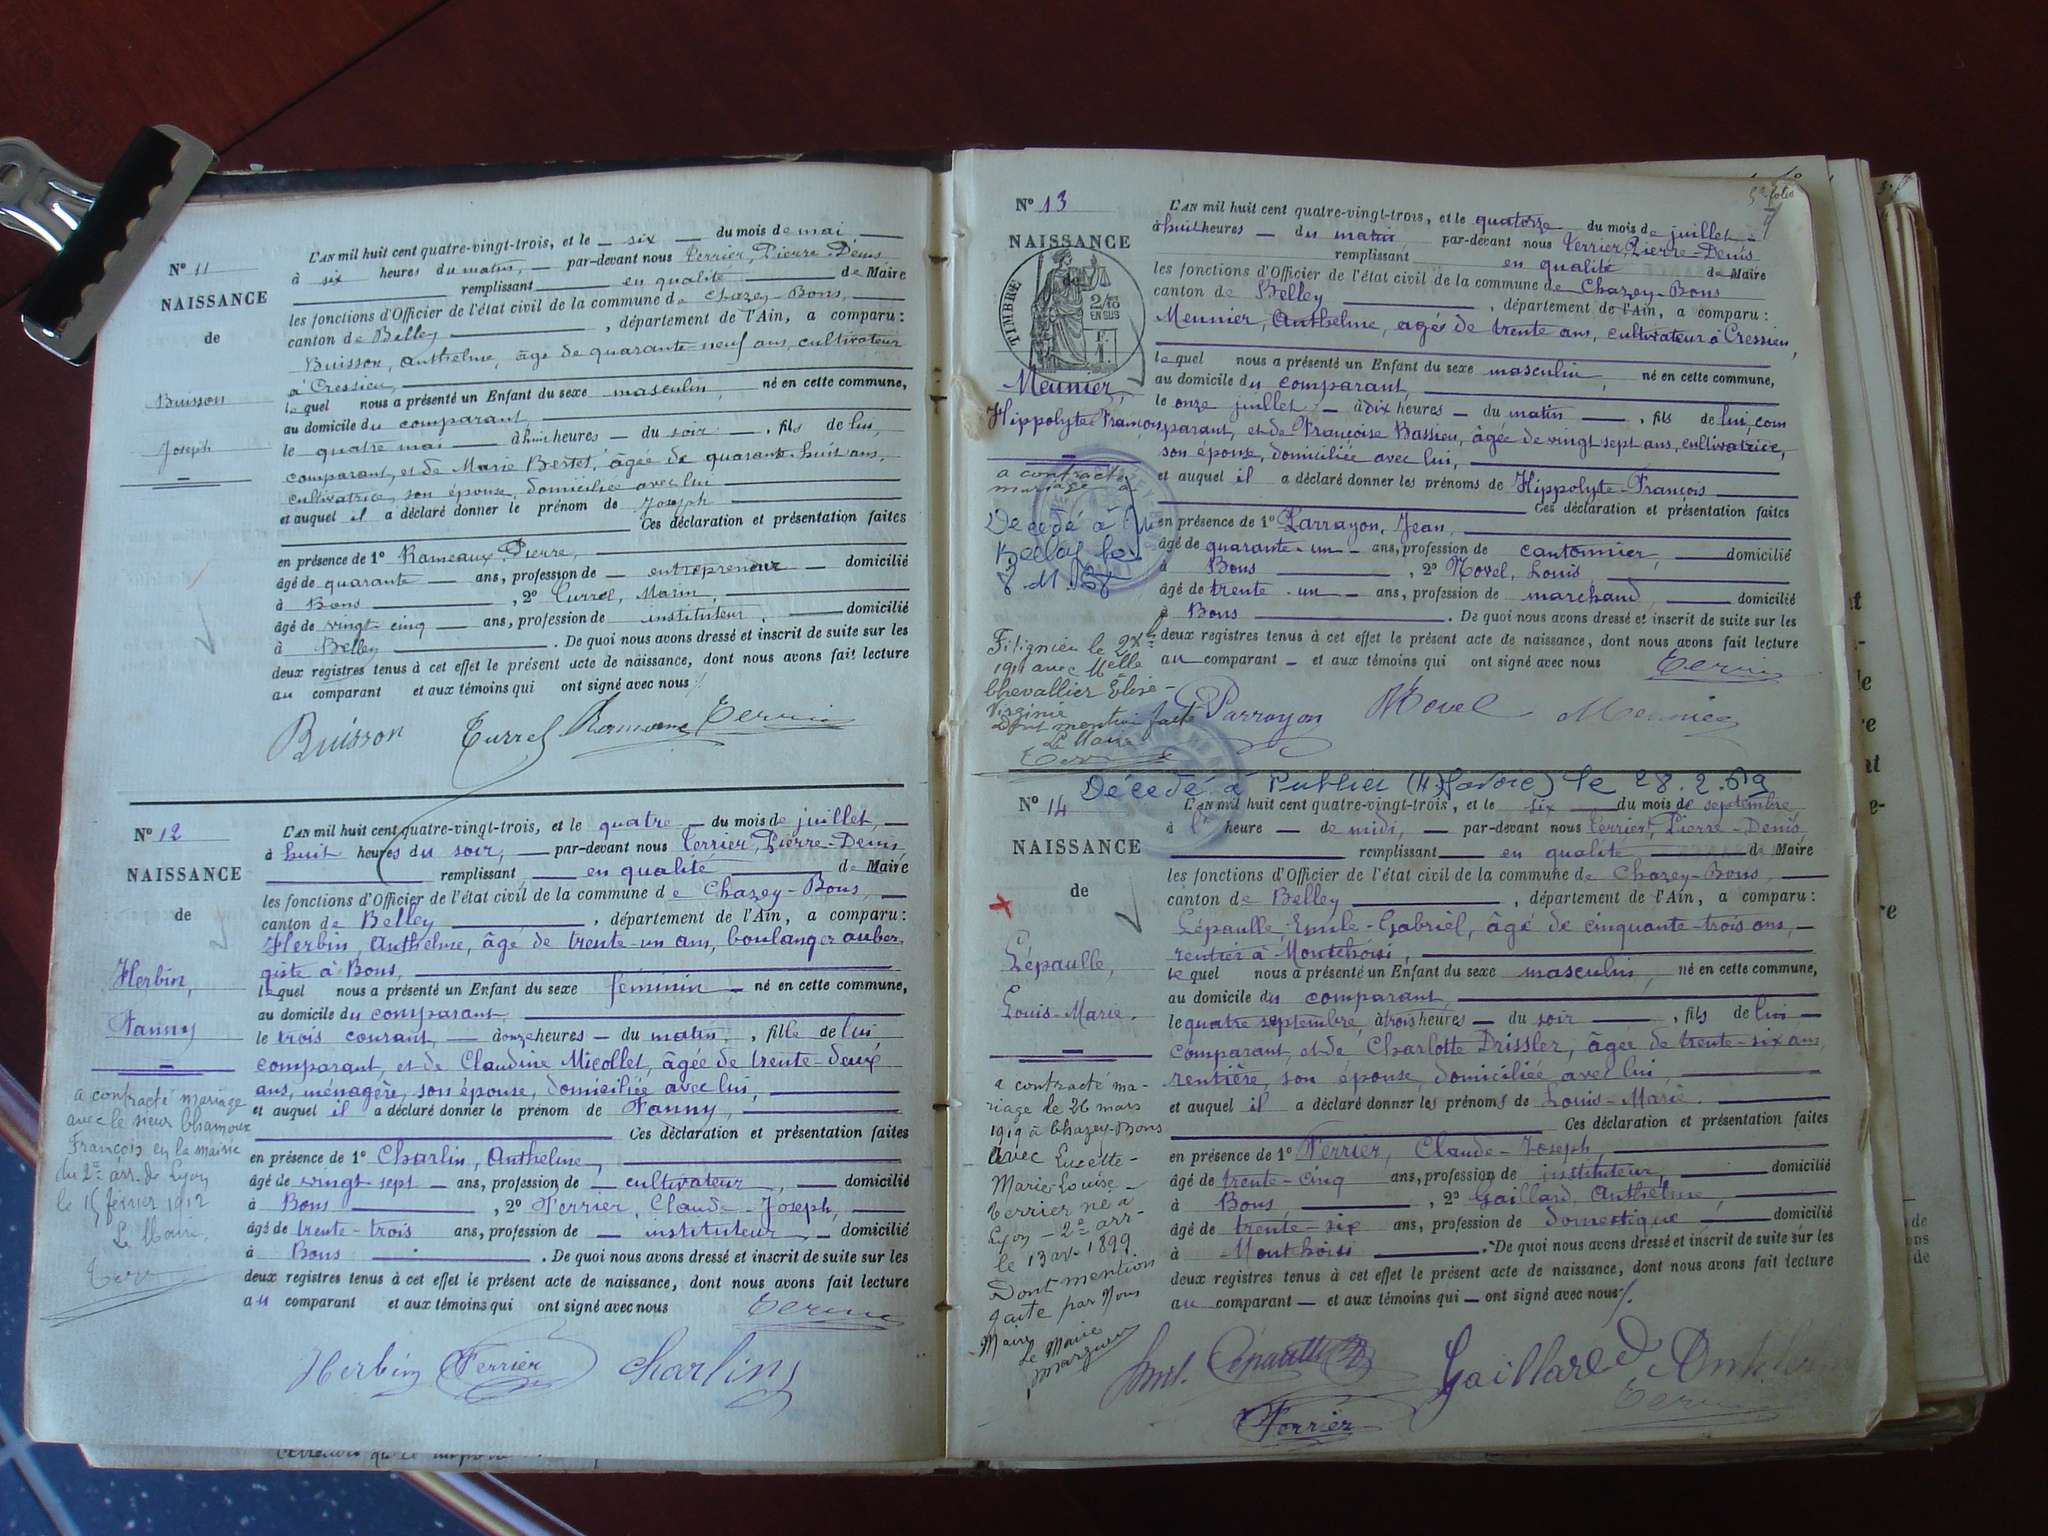 N° 11
NAISSANCE
de
Buisson
Joseph
L'AN mil huit cent quatre-vingt-trois, et le six du mois de mai
à six heures du matin, par-devant nous Terrier, Pierre-Denis
remplissant en qualité de Maire
les fonctions d'Officier de l'état civil de la commune de Chazey-Bons,
canton de Belley, département de l'Ain, a comparu:
Buisson, Anthelme, âgé de quarante-neuf ans, cultivateur
à Cressieu,
lequel nous a présenté un Enfant du sexe masculin, né en cette commune,
au domicile du comparant,
le quatre mai à huit heures du soir, fils de lui,
comparant, et de Marie Bertet, âgée de quarante-huit ans,
cultivatrice, son épouse, domiciliée avec lui
et auquel il a déclaré donner le prénom de Joseph
Ces déclaration et présentation faites
en présence de 1° Rameaux, Pierre,
âgé de quarante ans, profession de entrepreneur domicilié
à Bons, 2° Turrel, Marin,
âgé de vingt-cinq ans, profession de instituteur, domicilié
à Belley. De quoi nous avons dressé et inscrit de suite sur les
deux registres tenus à cet effet le présent acte de naissance, dont nous avons fait lecture
au comparant et aux témoins qui ont signé avec nous
Buisson Turrel Rameaux Terrier
N° 12
NAISSANCE
de
Herbin,
Fanny
a contracté mariage
avec le sieur Chamoux
François en la mairie
du 2e arr. de Lyon
le 15 février 1912
Le Maire,
L'AN mil huit cent quatre-vingt-trois, et le quatre du mois de juillet,
à huit heures du soir, par-devant nous Terrier, Pierre-Denis
remplissant en qualité de Maire
les fonctions d'Officier de l'état civil de la commune de Chazey-Bons,
canton de Belley, département de l'Ain, a comparu:
Herbin, Anthelme, âgé de trente-un ans, boulanger auber
giste à Bons,
lequel nous a présenté un Enfant du sexe féminin né en cette commune,
au domicile du comparant,
le trois courant, à onze heures du matin, fille de lui
comparant, et de Claudine Micollet, âgée de trente-deux
ans, ménagère, son épouse, domiciliée avec lui,
et auquel il a déclaré donner le prénom de Fanny,
Ces déclaration et présentation faites
en présence de 1° Charlin, Anthelme,
âgé de vingt sept ans, profession de cultivateur, domicilié
à Bons, 2° Ferrier, Claude-Joseph,
âgé de trente-trois ans, profession de instituteur, domicilié
à Bons. De quoi nous avons dressé et inscrit de suite sur les
deux registres tenus à cet effet le présent acte de naissance, dont nous avons fait lecture
au comparant et aux témoins qui ont signé avec nous
Herbin Ferrier Charlin
5e folio
7
N° 13
NAISSANCE
de
TIMBRE
2/10 EN SUS
F. 1.
Meunier,
Hippolyte-François
a contracté
mariage à
Décédé à
Belley le
8.11.58
Filignieu le
1911 avec Melle
Chevallier Elise-
Virginie
Dont mention faite
Le Maire
L'AN mil huit cent quatre-vingt-trois, et le quatorze du mois de juillet
à huit heures du matin, par-devant nous Terrier, Pierre-Denis
remplissant en qualité de Maire
les fonctions d'Officier de l'état civil de la commune de Chazey-Bons
canton de Belley, département de l'Ain, a comparu:
Meunier, Anthelme, agés de trente ans, cultivateur à Cressieu,
lequel nous a présenté un Enfant du sexe masculin, né en cette commune,
au domicile du comparant,
le onze juillet, à dix heures du matin, fils de lui, com
parant, et de Françoise Bassieu, âgée de vingt sept ans, cultivatrice,
son épouse, domiciliée avec lui,
et auquel il a déclaré donner les prénoms de Hippolyte-François
Ces déclaration et présentation faites
en présence de 1° Parrayon, Jean,
âgé de quarante-un ans, profession de cantonnier, domicilié
à Bons, 2° Novel, Louis,
âgé de trente-un ans, profession de marchand, domicilié
à Bons. De quoi nous avons dressé et inscrit de suite sur les
deux registres tenus à cet effet le présent acte de naissance, dont nous avons fait lecture
au comparant et aux témoins qui ont signé avec nous
Parrayon Novel Meunier
Décédé à Publier (H. Savoie) le 28.2.69
N° 14
NAISSANCE
de
Lépaulle,
Louis-Marie.
a contracté ma-
riage le 26 mars
1919 à Chazey-Bons
avec Lucette-
Marie-Louise-
Terrier né à
Lyon - 2e arr-
le 13 av. 1899.
Dont mention
faite par Nous
Maire
Le Maire
L'AN mil huit cent quatre-vingt-trois, et le six du mois de septembre
à 1re heure de midi, par-devant nous Terrier, Pierre-Denis,
remplissant en qualité de Maire
les fonctions d'Officier de l'état civil de la commune de Chazey-Bons,
canton de Belley, département de l'Ain, a comparu:
Lépaulle, Emile-Gabriel, âgé de cinquante-trois ans,
rentier à Montchoisi,
lequel nous a présenté un Enfant du sexe masculin, né en cette commune,
au domicile du comparant,
le quatre septembre, à trois heures du soir, fils de lui
comparant, et de Charlotte Drissler, âgée de trente-six ans,
rentière, son épouse, domiciliée avec lui,
et auquel il a déclaré donner les prénoms de Louis-Marie.
Ces déclaration et présentation faites
en présence de 1° Ferrier, Claude-Joseph,
âgé de trente-cinq ans, profession de instituteur, domicilié
à Bons, 2° Gaillard, Anthelme,
âgé de trente-six ans, profession de domestique domicilié
à Montchoisi. De quoi nous avons dressé et inscrit de suite sur les
deux registres tenus à cet effet le présent acte de naissance, dont nous avons fait lecture
au comparant et aux témoins qui ont signé avec nous
Emil. Lépaulle Gaillard Anthelme
Ferrier